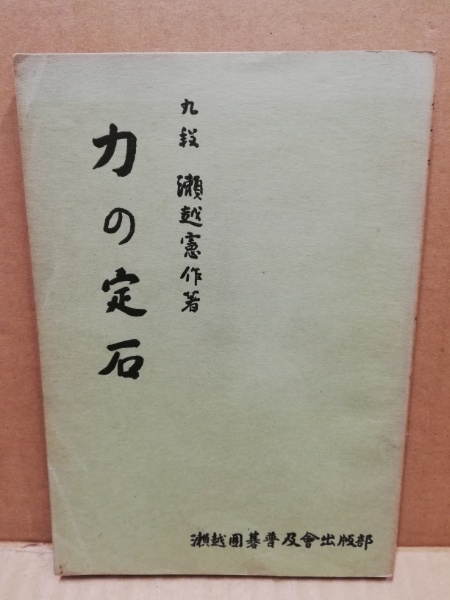 九段 瀬越憲作著
力の定石
瀬越圍碁普及會出版部